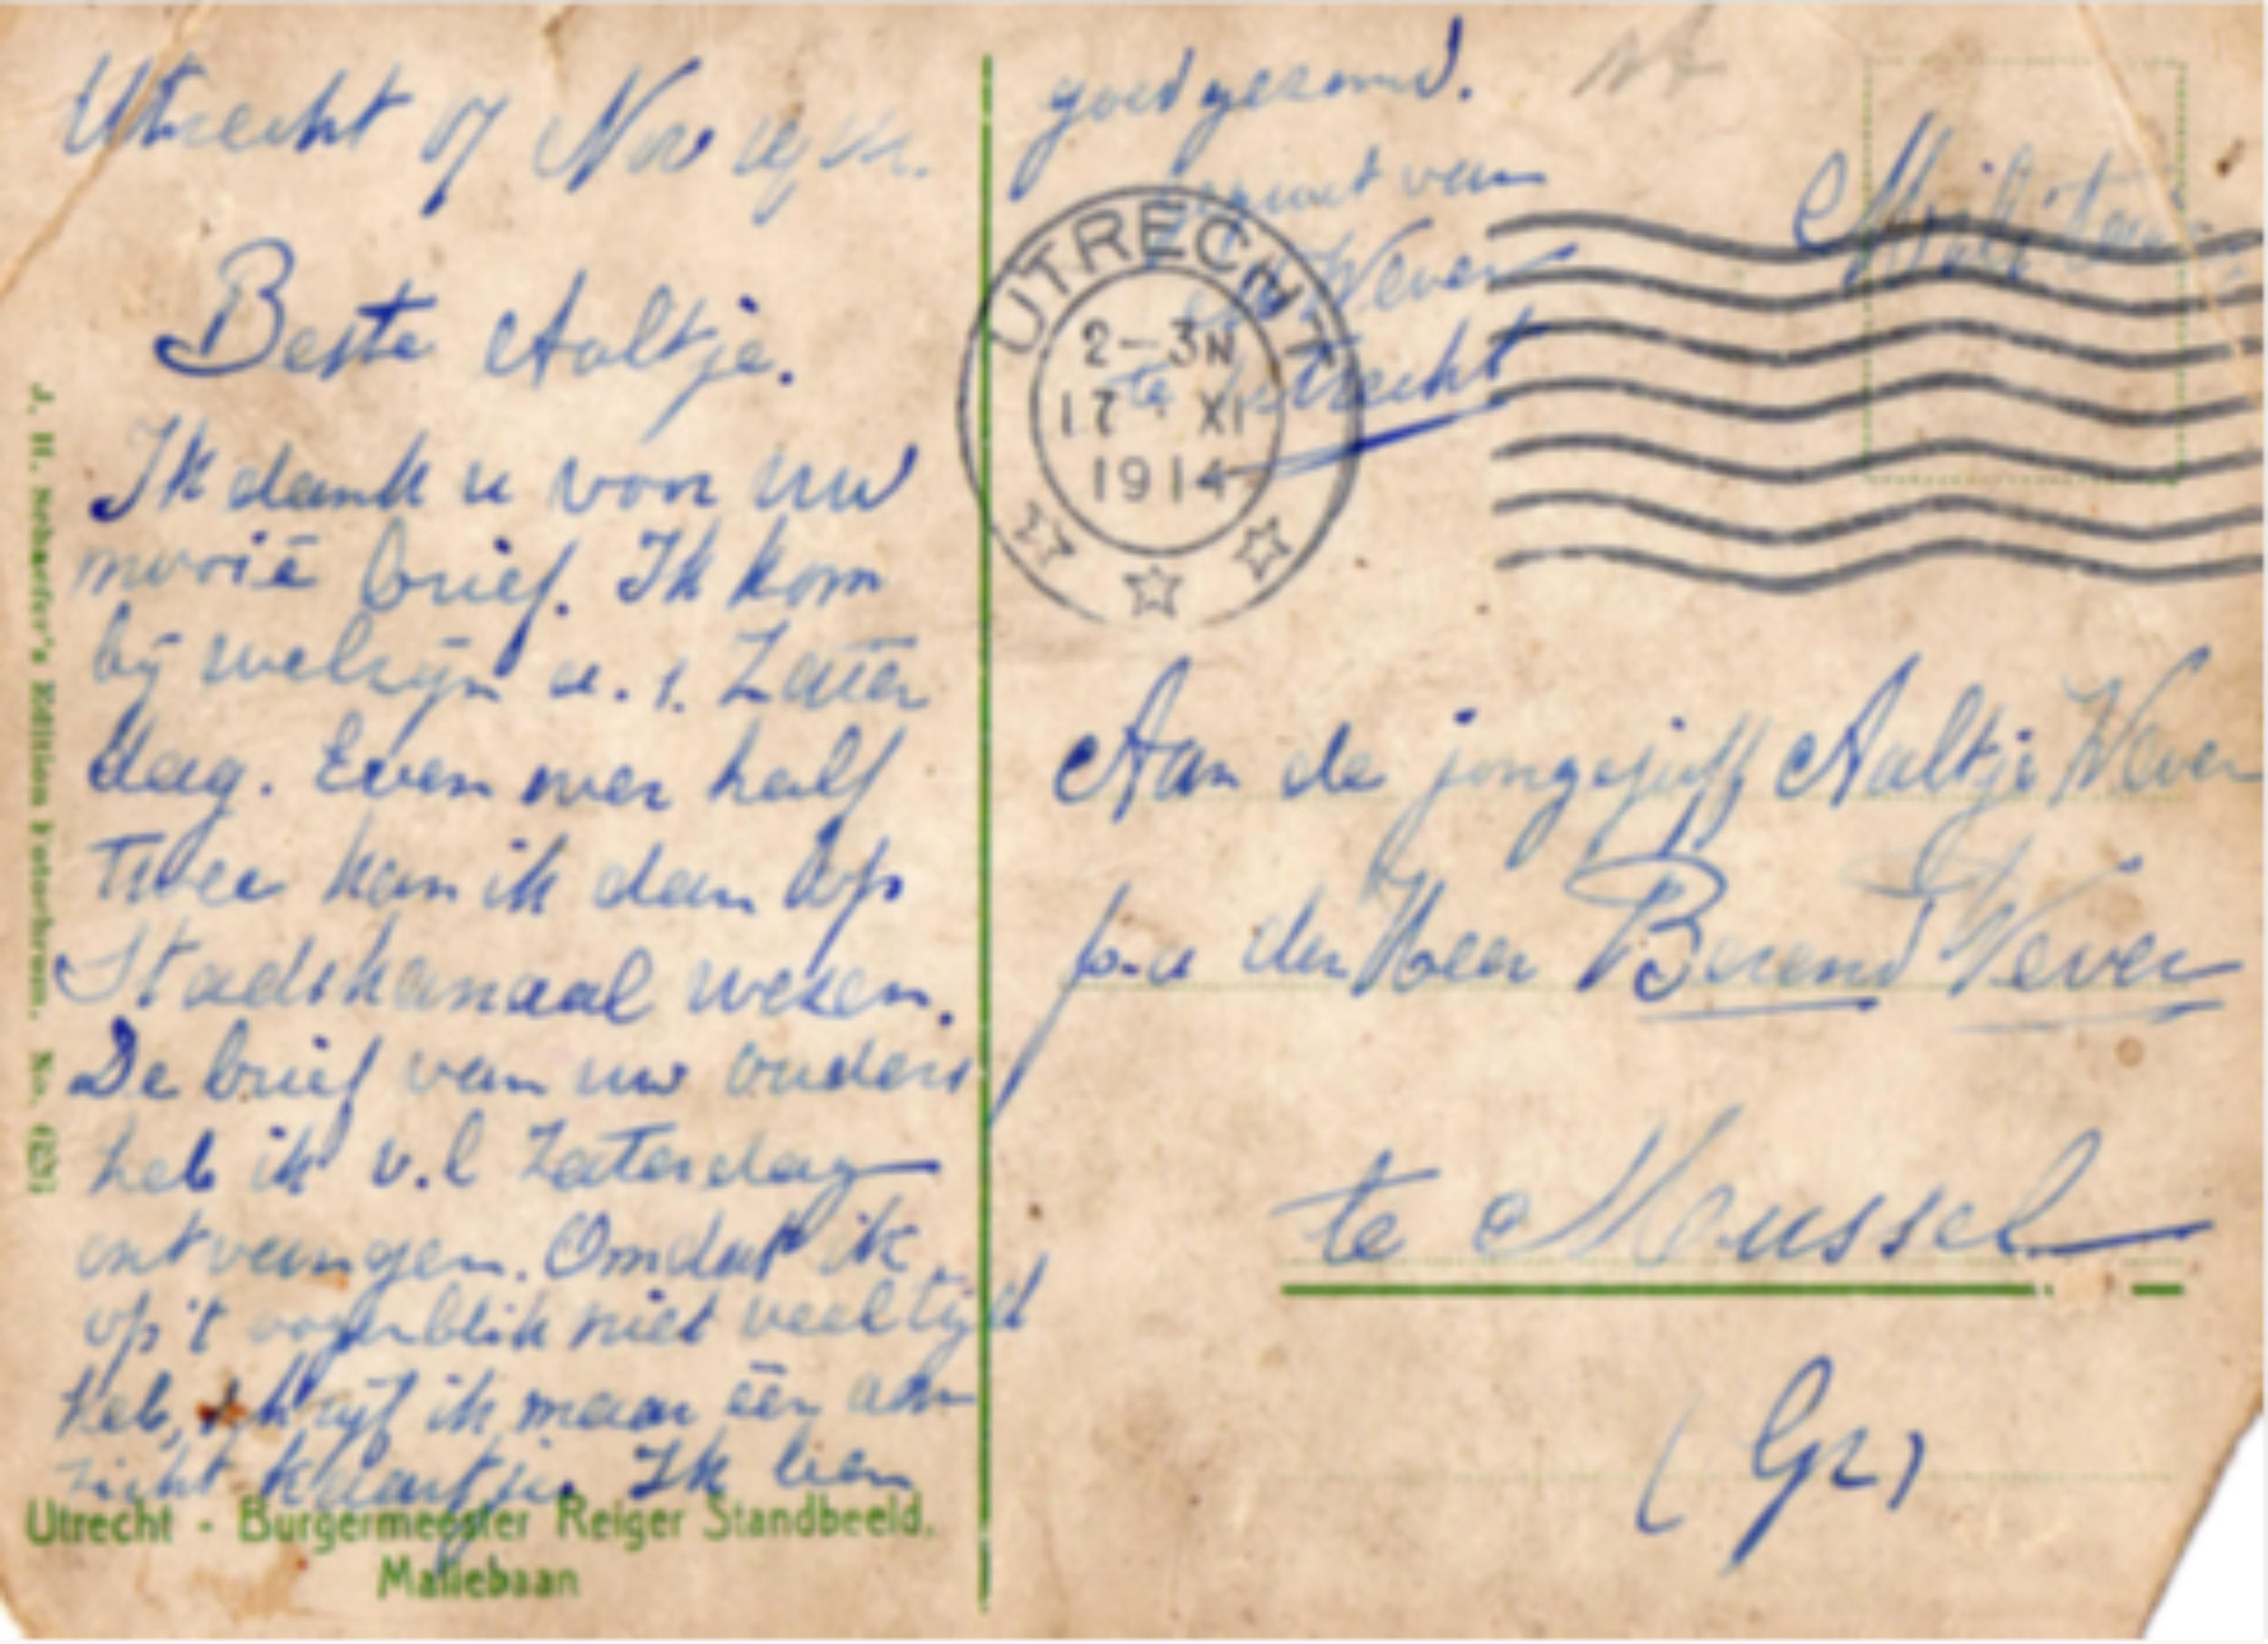 Utrecht 17 Nov
Beste Aaltje.
Ik dank u voor uw
mooië brief. Ik kom
bij welzijn a.s. Zater
dag. Even over half
twee kan ik dan op
Stadskanaal wezen.
De brief van uw ouders
heb ik v.l Zaterdag
ontvangen. Omdat ik
op 't oogenblik niet veel tijd
heb, schrijf ik maar één aan
zicht kaartje. Ik ben
goed gezond.
gegroet van
Wever
te Utrecht
Militair
UTRECHT
2-3N
17 · XI
1914
Aan de jongejuff Aaltje Wever
p.a den Heer Berend Wever
te Mussel
(Gr)
Utrecht - Burgermeester Reiger Standbeeld.
Maliebaan
J. H. Schaefer's Edition Fotochrom. No. 629